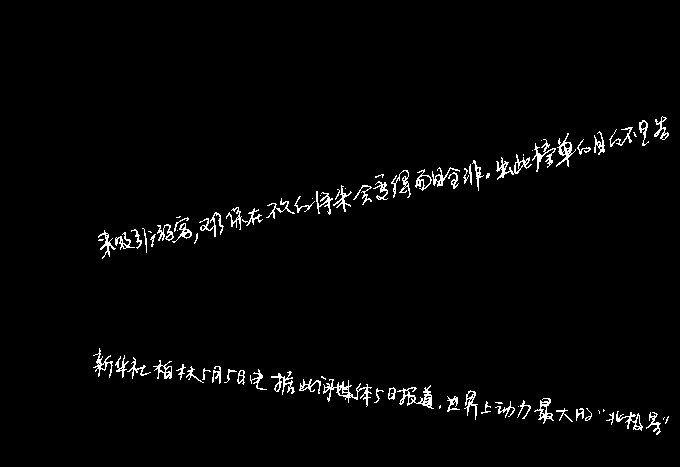 来吸引游客,难保在不久的将来会变得面目全非。出此榜单的目的不是告
新华社柏林5月5日电 据此间媒体5日报道,世界上动力最大的“北极号”